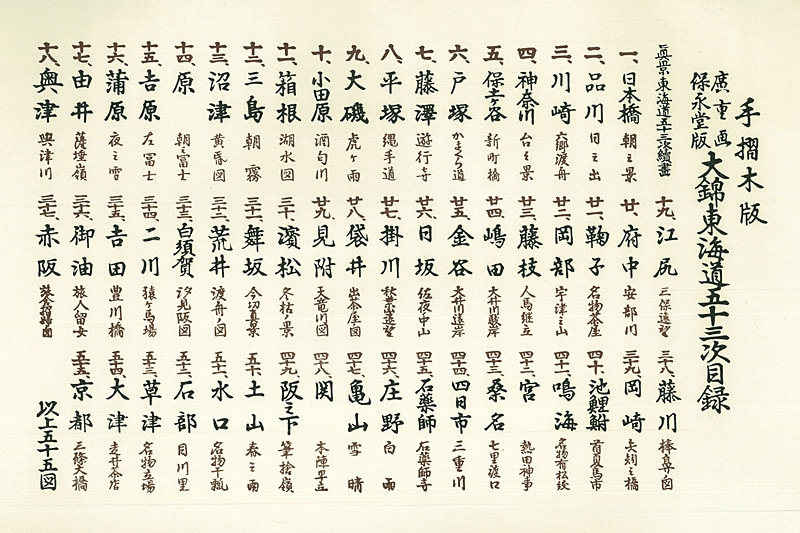 手摺木版
廣重画
保永堂版
大錦東海道五十三次目録
真景東海道五十三次續畫
一、日本橋 朝之景
二、品川 日之出
三、川崎 六郷渡舟
四、神奈川 台之景
五、保土ヶ谷 新町橋
六、戸塚 かまくら道
七、藤澤 遊行寺
八、平塚 縄手道
九、大磯 虎ヶ雨
十、小田原 酒匂川
十一、箱根 湖水図
十二、三島 朝霧
十三、沼津 黄昏図
十四、原 朝之富士
十五、吉原 左富士
十六、蒲原 夜之雪
十七、由井 薩埵嶺
十八、奥津 興津川
十九、江尻 三保遠望
廿、府中 安部川
廿一、鞠子 名物茶屋
廿二、岡部 宇津之山
廿三、藤枝 人馬継立
廿四、嶋田 大井川駿岸
廿五、金谷 大井川遠岸
廿六、日坂 佐夜中山
廿七、掛川 秋葉山遠望
廿八、袋井 出茶屋図
廿九、見附 天竜川図
三十、濱松 冬枯ノ景
三十一、舞坂 今切真景
三十二、荒井 渡舟ノ図
三十三、白須賀 汐見阪図
三十四、二川 猿ヶ馬場
三十五、吉田 豊川橋
三十六、御油 旅人留女
三十七、赤阪 旅舎招婦ノ図
三十八、藤川 棒鼻ノ図
三十九、岡崎 矢矧之橋
四十、池鯉鮒 首夏馬市
四十一、鳴海 名物有松絞
四十二、宮 熱田神事
四十三、桑名 七里渡口
四十四、四日市 三重川
四十五、石薬師 石薬師寺
四十六、庄野 白雨
四十七、亀山 雪晴
四十八、関 本陣早立
四十九、阪之下 筆捨嶺
五十、土山 春之雨
五十一、水口 名物干瓢
五十二、石部 目川里
五十三、草津 名物立場
五十四、大津 走井茶店
五十五、京都 三條大橋
以上五十五図